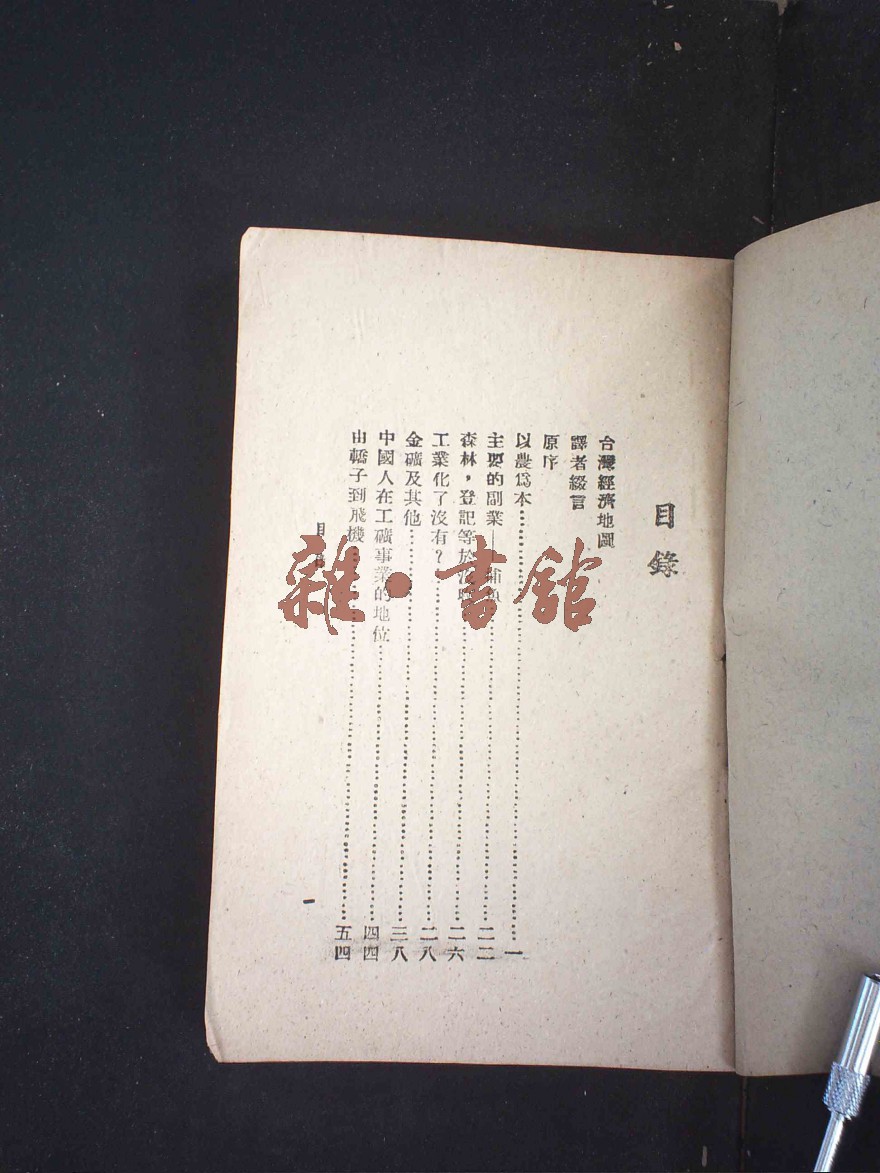 目錄
台灣經濟地圖
譯者綴言
原序
以農爲本…………一
主要的副業——捕魚…………二二
森林，登記等於沒收…………二六
工業化了沒有？…………二八
金礦及其他…………三八
中國人在工礦事業的地位…………四四
由轎子到飛機…………五四
目
一
雜·書館